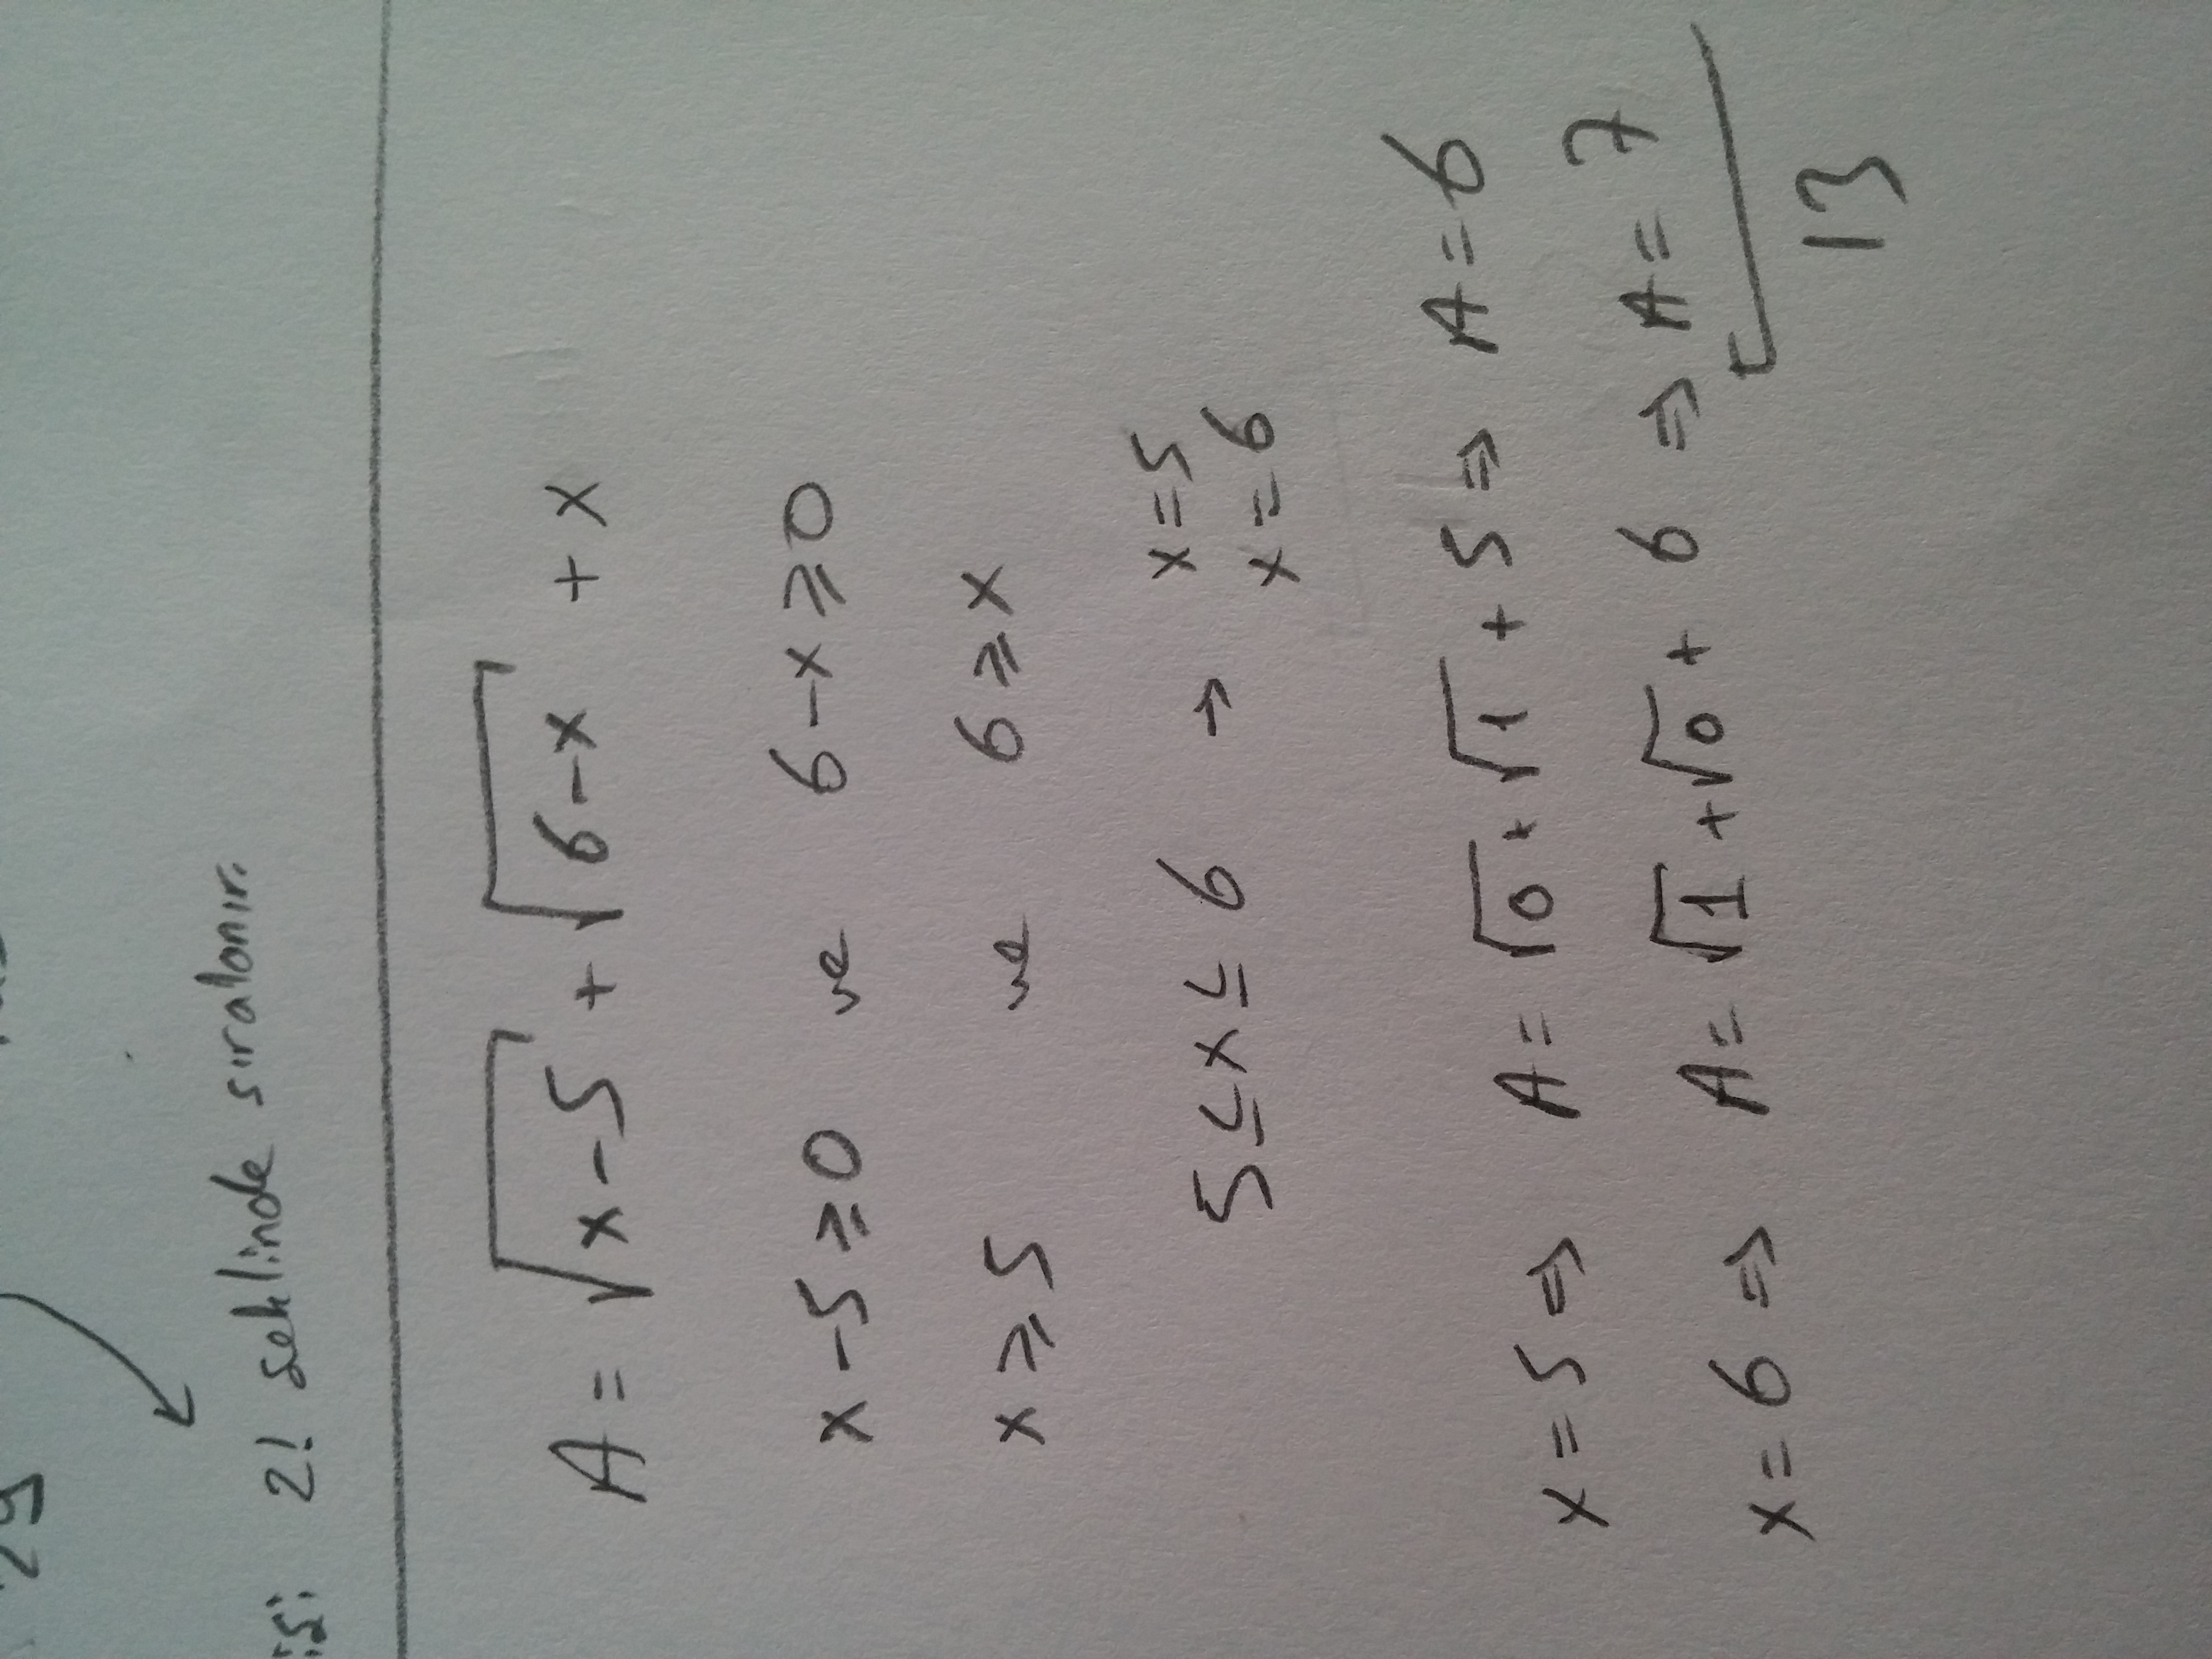 2! şeklinde sıralanır.
A = √(x-5) + √(6-x) + x
x-5 ≥ 0 ve 6-x ≥ 0
x ≥ 5 ve 6 ≥ x
5 ≤ x ≤ 6 → x=5
x=6
x=5 ⇒ A = √0 + √1 + 5 ⇒ A = 6
x=6 ⇒ A = √1 + √0 + 6 ⇒ A = 7
13